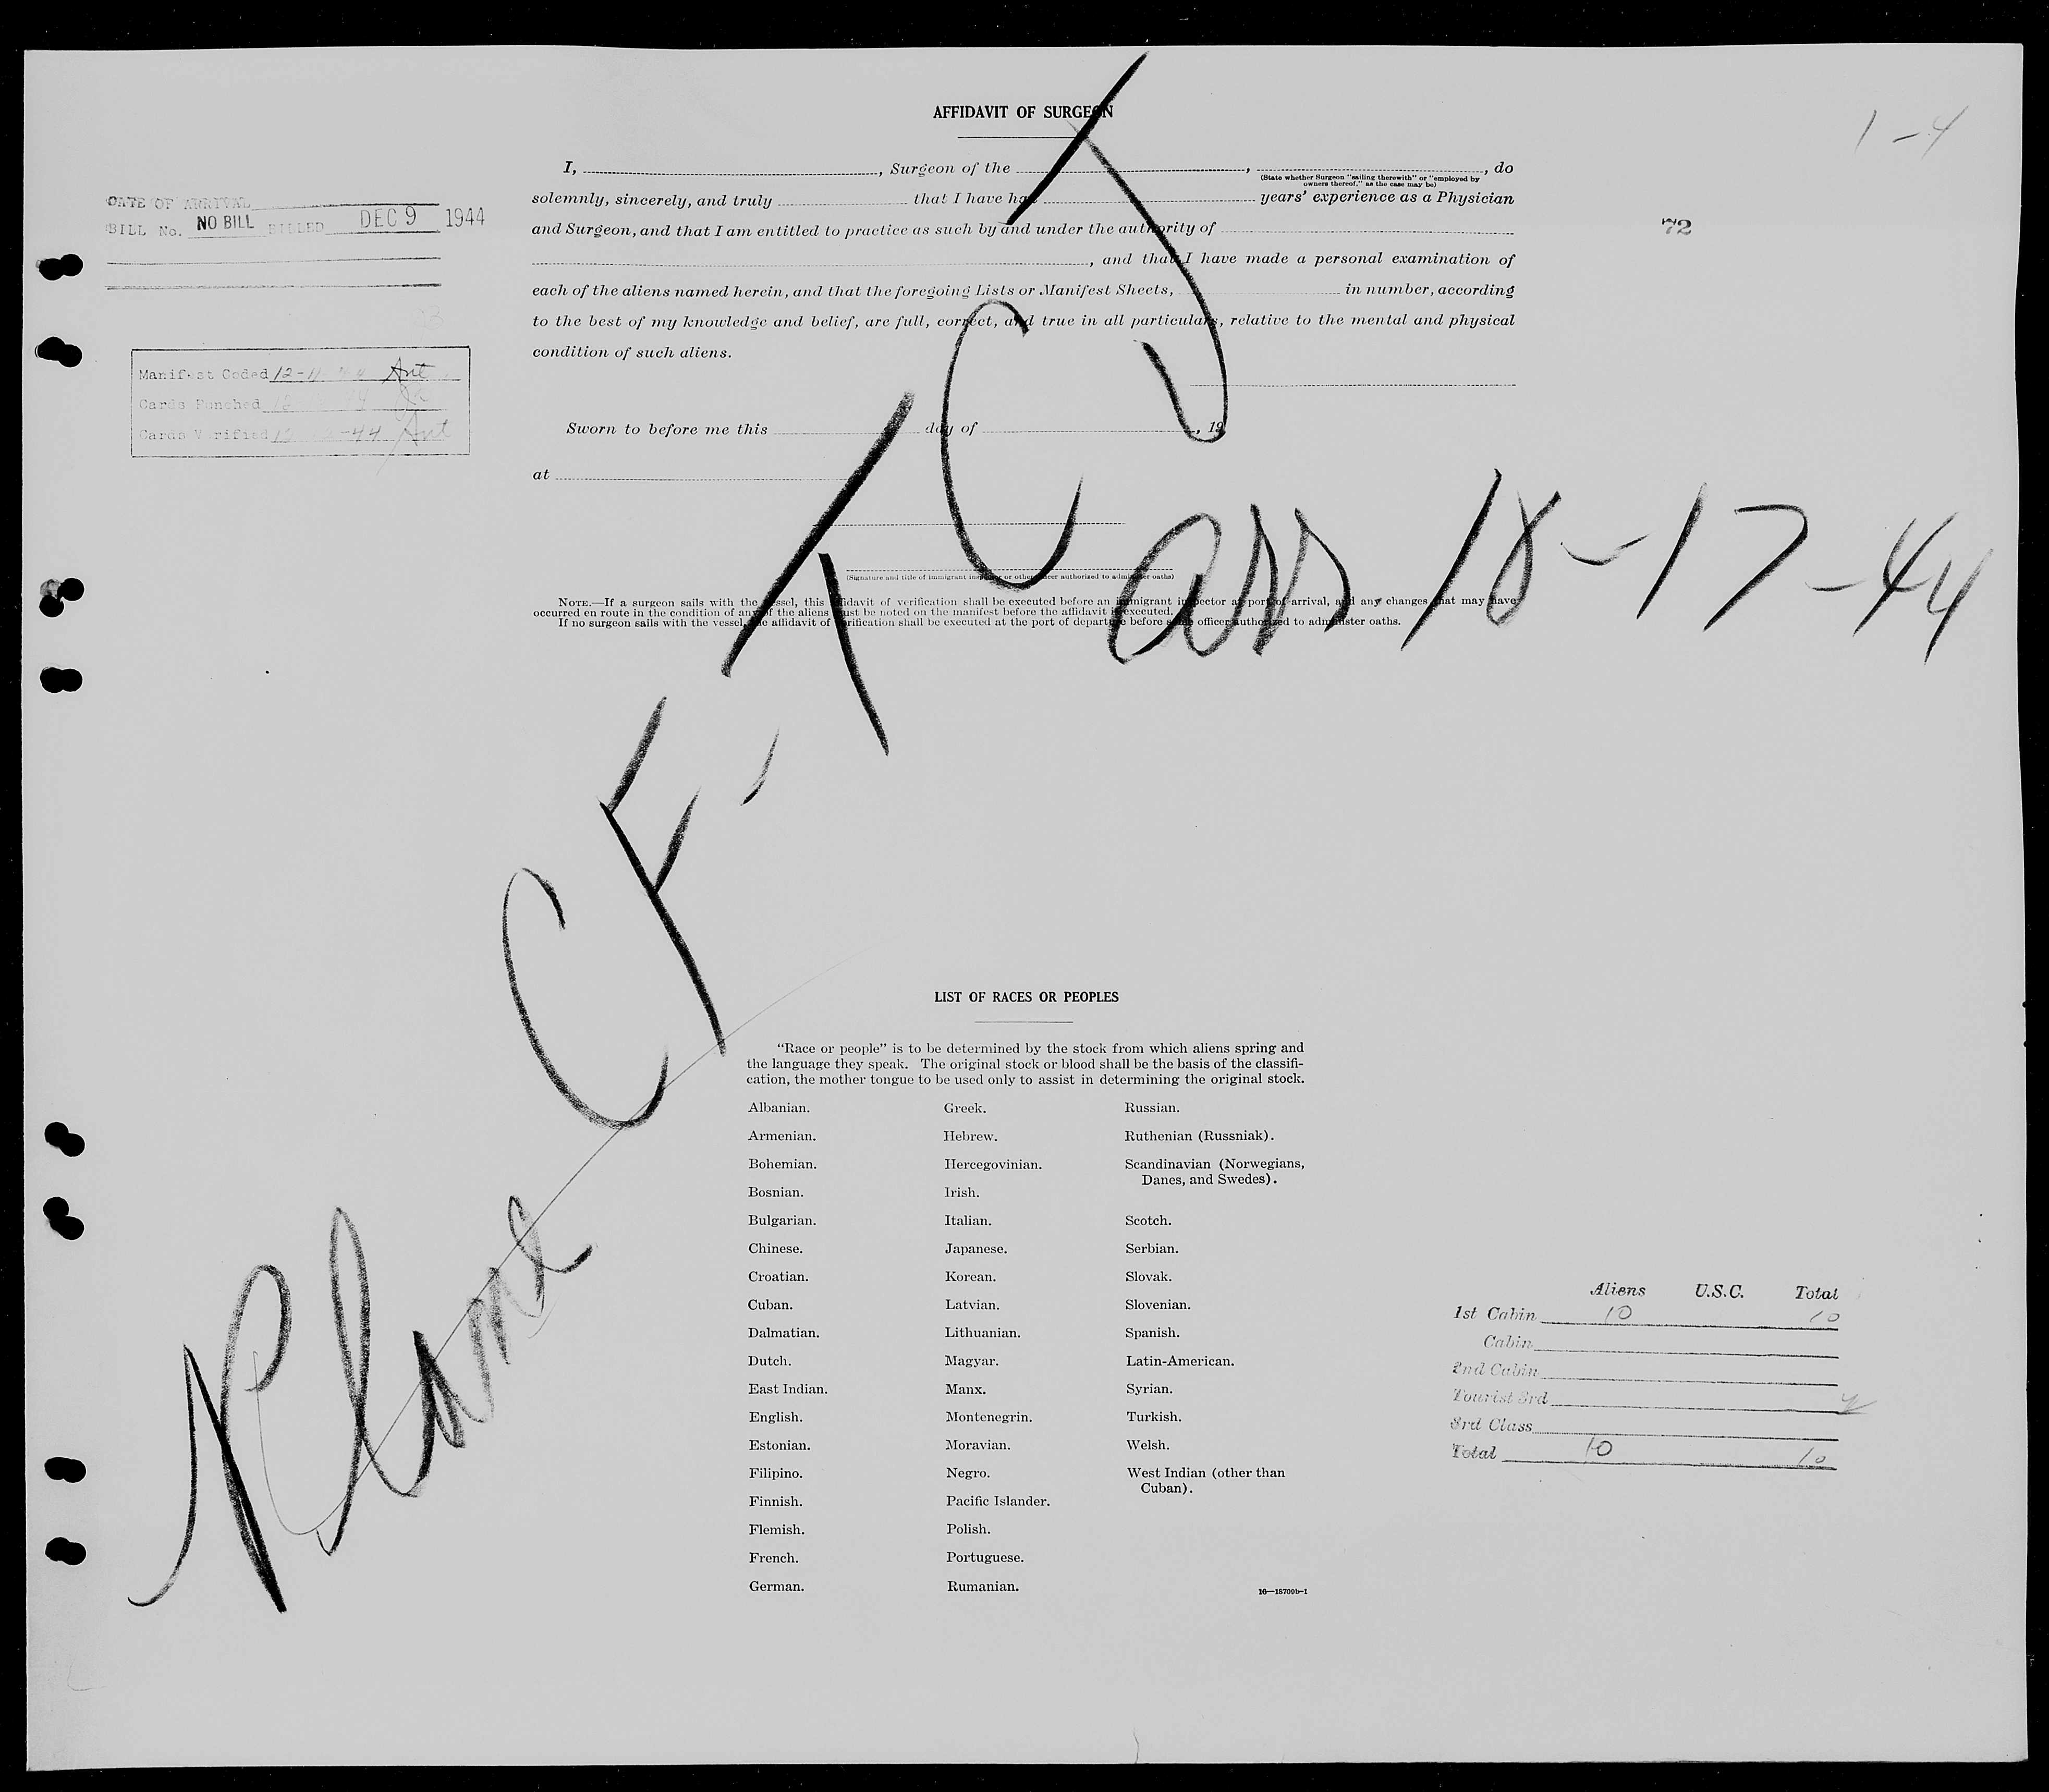 AFFIDAVIT OF SURGEON
1-4
I, , Surgeon of the , , do
(State whether Surgeon "sailing therewith" or "employed by
owners thereof," as the case may be)
solemnly, sincerely, and truly that I have had years' experience as a Physician
and Surgeon, and that I am entitled to practice as such by and under the authority of
, and that I have made a personal examination of
each of the aliens named herein, and that the foregoing Lists or Manifest Sheets, in number, according
to the best of my knowledge and belief, are full, correct, and true in all particulars, relative to the mental and physical
condition of such aliens.
DATE OF ARRIVAL
BILL No. NO BILL BILLED DEC 9 1944
72
Manifest Coded 12-11-44
Cards Punched
Cards Verified -44
Sworn to before me this day of , 19
at
(Signature and title of immigrant inspector or other officer authorized to administer oaths)
NOTE.—If a surgeon sails with the vessel, this affidavit of verification shall be executed before an immigrant inspector at port of arrival, and any changes that may have
occurred en route in the condition of any of the aliens must be noted on the manifest before the affidavit is executed.
If no surgeon sails with the vessel, the affidavit of verification shall be executed at the port of departure before some officer authorized to administer oaths.
Plane CF-TCJ
arr 18-17-44
LIST OF RACES OR PEOPLES
"Race or people" is to be determined by the stock from which aliens spring and
the language they speak. The original stock or blood shall be the basis of the classifi-
cation, the mother tongue to be used only to assist in determining the original stock.
Albanian.
Armenian.
Bohemian.
Bosnian.
Bulgarian.
Chinese.
Croatian.
Cuban.
Dalmatian.
Dutch.
East Indian.
English.
Estonian.
Filipino.
Finnish.
Flemish.
French.
German.
Greek.
Hebrew.
Hercegovinian.
Irish.
Italian.
Japanese.
Korean.
Latvian.
Lithuanian.
Magyar.
Manx.
Montenegrin.
Moravian.
Negro.
Pacific Islander.
Polish.
Portuguese.
Rumanian.
Russian.
Ruthenian (Russniak).
Scandinavian (Norwegians,
Danes, and Swedes).
Scotch.
Serbian.
Slovak.
Slovenian.
Spanish.
Latin-American.
Syrian.
Turkish.
Welsh.
West Indian (other than
Cuban).
16—18709b-1
Aliens U.S.C. Total
1st Cabin 10 10
Cabin
2nd Cabin
Tourist 3rd
3rd Class
Total 10 10